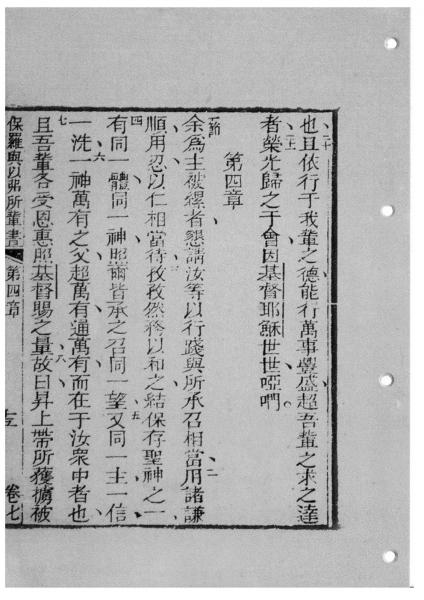 也且依行于我輩之德能行萬事豐盛超吾輩之求之達
者榮光歸之于會因基督耶穌世世啞們
第四章
一節
余為主被縲者懇請汝等以行踐與所承召相當用諸謙
順用忍以仁相當待孜孜然務以和之結保存聖神之一
有同一體同一神照爾皆承之召同一望又同一主一信
一洗一神萬有之父超萬有通萬有而在于汝眾中者也
且吾輩各受恩惠照基督賜之量故曰昇上帶所獲擄被
保羅與以弗所輩書
第四章
卷七